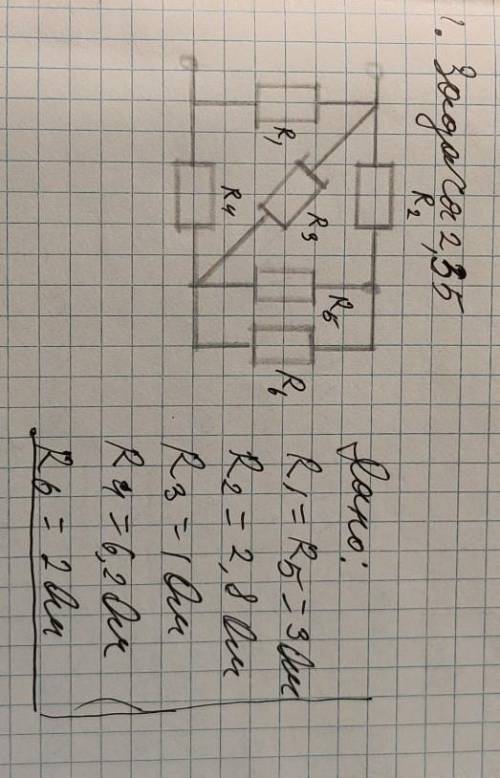 1. Задача 2,35
R2
R1
R3
R4
R5
R6
Дано:
R1 = R5 = 3 Ом
R2 = 2,8 Ом
R3 = 1 Ом
R4 = 6,2 Ом
R6 = 2 Ом